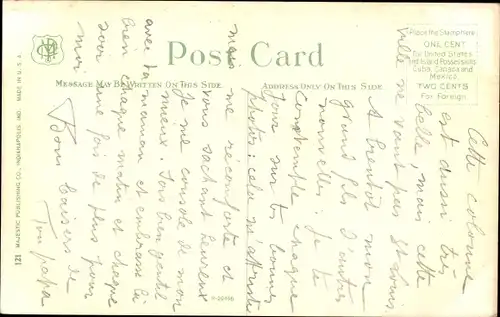 Post Card
MESSAGE MAY BE WRITTEN ON THIS SIDE
ADDRESS ONLY ON THIS SIDE
Place the Stamp here
ONE CENT
For United States
and Island Possessions
Cuba, Canada and
Mexico.
TWO CENTS
For Foreign
121 MAJESTIC PUBLISHING CO., INDIANAPOLIS, IND. MADE IN U. S. A.
Cette colonne
est aussi très
belle, mais cette
ville ne vaut pas St Louis.
A bientôt mon
grand fils d'autres
nouvelles. Je te
contemple chaque
jour sur tes bonnes
photos: cela m'attriste
mais me réconforte et
vous sachant heureux
je me console de mon
mieux. Sois bien gentil
avec ta maman et embrasse la
bien chaque matin et chaque
soir une fois de plus pour
moi
Bons baisers de
Ton papa